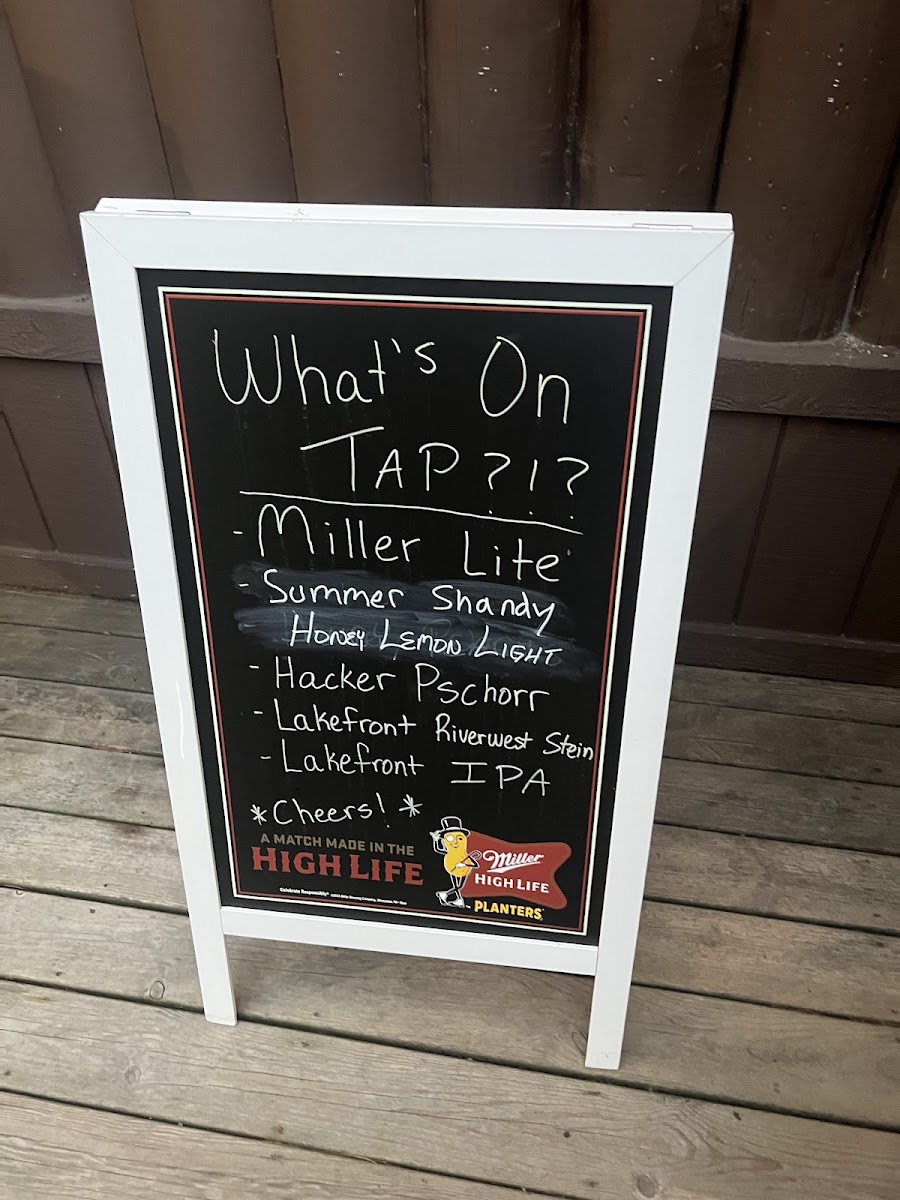 What's On
TAP?!?
- Miller Lite
- Summer Shandy
HONEY LEMON LIGHT
- Hacker Pschorr
- Lakefront Riverwest Stein
- Lakefront IPA
*Cheers!*
A MATCH MADE IN THE
HIGH LIFE
Miller
HIGH LIFE
PLANTERS
Celebrate Responsibly®